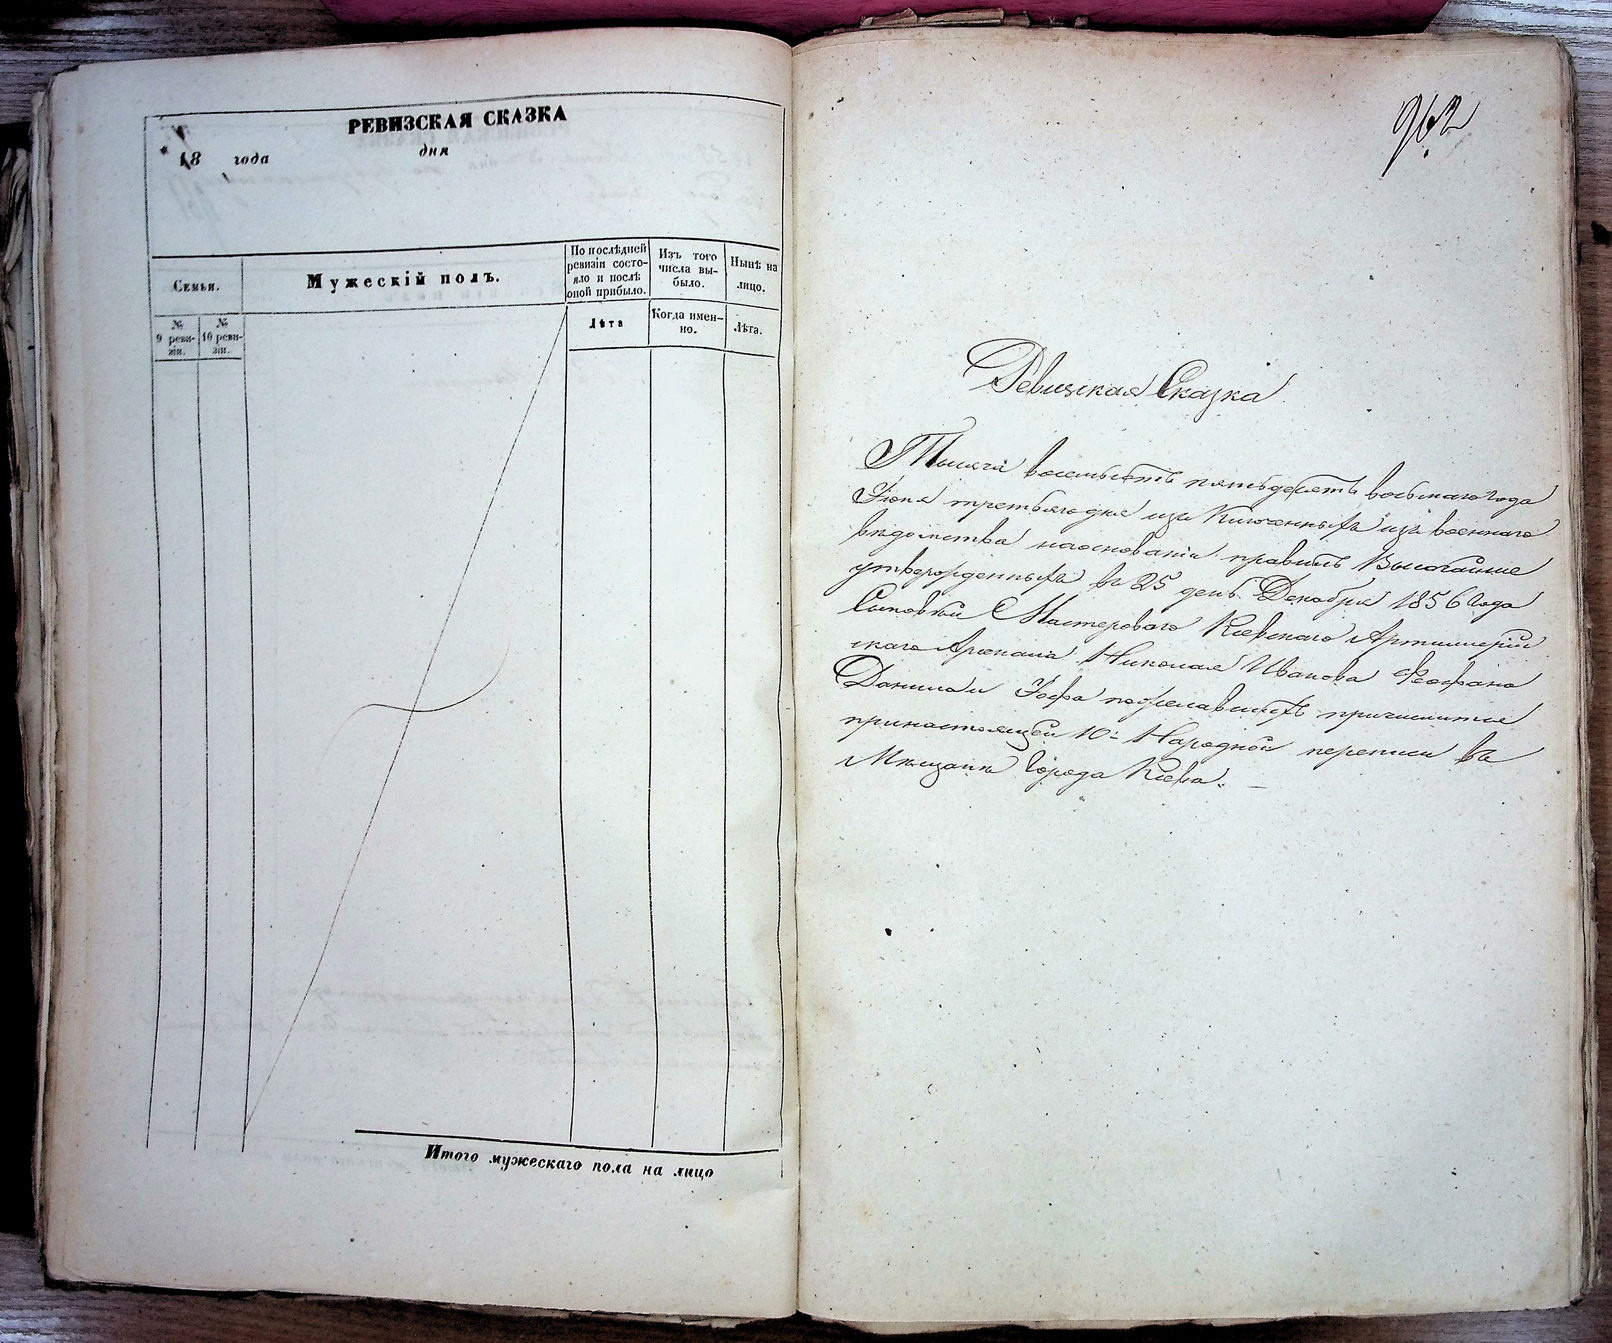 РЕВИЗСКАЯ СКАЗКА
18 года дня
Семьи.
Мужескій полъ.
По послѣдней ревизіи состо-
яло и послѣ
оной прибыло.
Изъ того
числа вы-
было.
Нынѣ на
лицо.
№
9 реви-
зіи.
№
10 реви-
зіи.
Лѣта
Когда имен-
но.
Лѣта.
Итого мужескаго пола на лицо
962
Ревизская Сказка
Тысяча восемьсотъ пятьдесятъ восьмаго года
Іюня третьяго дня изъ Ключенныхъ изъ военнаго
вѣдомства на основаніи правилъ Высочайше
утвержденныхъ въ 25 день Декабря 1856 года
Сыновьи Мастероваго Кіевскаго Артиллерій
скаго Арсенала Николая Иванова Феофана
Данила и пожелавшихъ причислится
при настоящей 10й Народной переписи въ
Мѣщане Города Кіева.